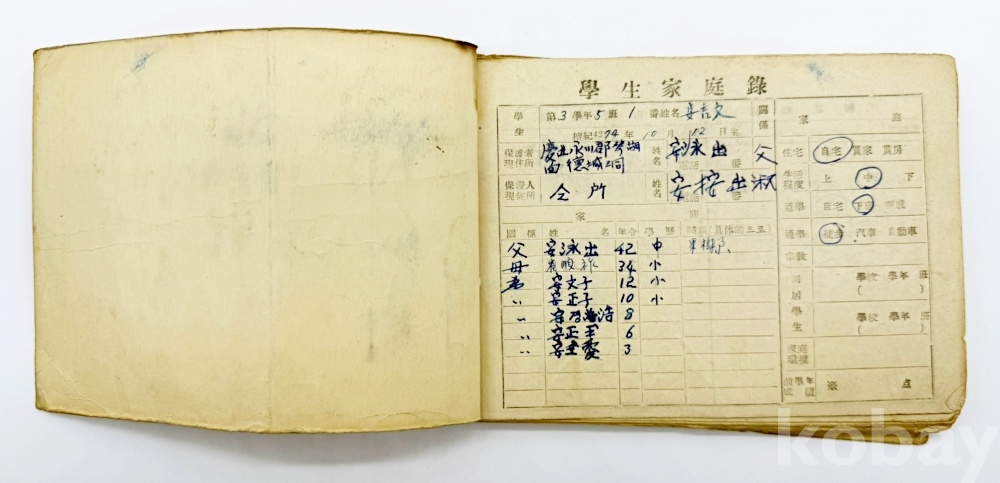 學生家庭錄
學生 第3學年5班1番姓名 安吉文 關係 家庭
檀紀4274年10月12日生
保護者現住所 慶北永川郡琴湖面德城洞 姓名 安泳出 父 住宅 自宅 貰家 貰房
生活程度 上 中 下
保證人現住所 仝所 姓名 安 出 叔 通學 自宅 下宿
通學 徒步 汽車 自動車
家族
關係 姓名 年令 學歷 職業(具体的으로) 宗敎
父 安泳出 42 中
母 順祚 34 小 學校 學年 班
安文子 12 小 ( )
〃 安正子 10 小
〃 安 浩 8 學生 學校 學年 班
〃 安正 6 ( )
〃 安 3 家庭環境
前學年成績 席 点
kobay